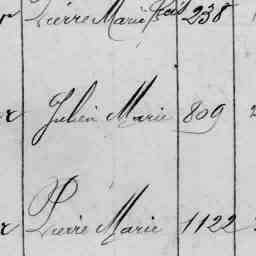 Pierre Marie 238
r Julien Marie 809
r Pierre Marie 1122